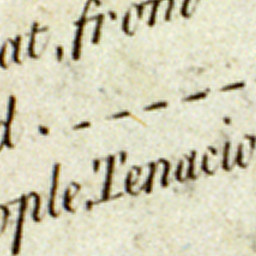 at, from
d . - - - - -
ople, Tenacio